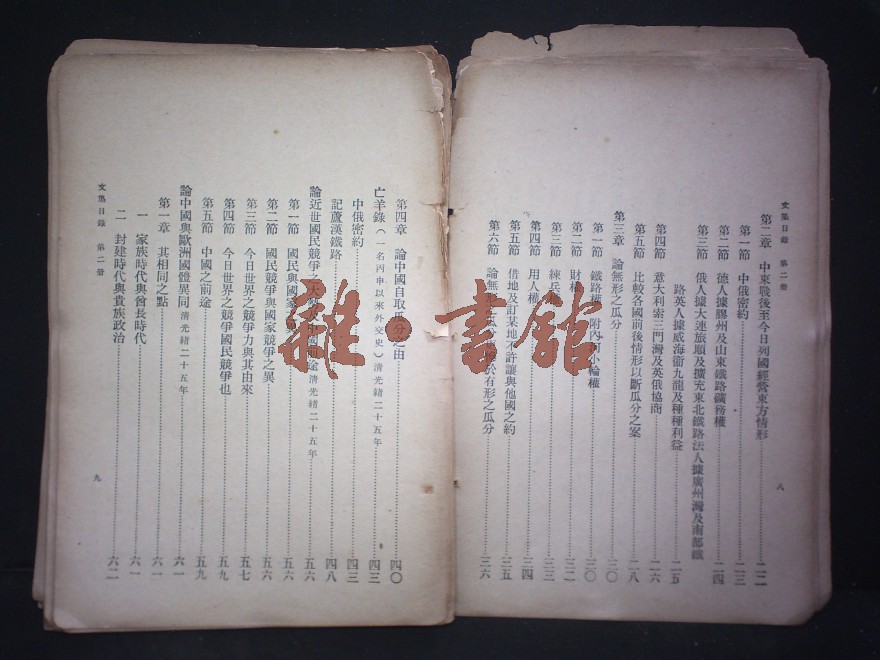 文集目錄 第二册
第二章 中東戰後至今日列國經營東方情形 二二
第一節 中俄密約 二三
第二節 德人據膠州及山東鐵路礦務權 二四
第三節 俄人據大連旅順及擴充東北鐵路法人據廣州灣及南部鐵
路英人據威海衞九龍及種種利益 二五
第四節 意大利索三門灣及英俄協商 二六
第五節 比較各國前後情形以斷瓜分之案 二八
第三章 論無形之瓜分 三〇
第一節 鐵路權 附內 小輪權 三〇
第二節 財權 三二
第三節 練兵 三三
第四節 用人權 三四
第五節 借地及訂某地不許讓與他國之約 三五
第六節 論無形之瓜 於有形之瓜分 三六
八
第四章 論中國自取瓜分之由 四〇
亡羊錄(一名丙申以來外交史)清光緒二十五年 四三
中俄密約 四三
記蘆漢鐵路 四八
論近世國民競爭之大 及中國前途 清光緒二十五年 五六
第一節 國民與國家 五六
第二節 國民競爭與國家競爭之異 五六
第三節 今日世界之競爭力與其由來 五七
第四節 今日世界之競爭國民競爭也 五九
第五節 中國之前途 五九
論中國與歐洲國體異同 清光緒二十五年 六一
第一章 其相同之點 六一
一 家族時代與酋長時代 六一
二 封建時代與貴族政治 六二
文集目錄 第二册
九
雜·書館